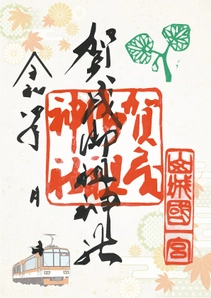 賀茂御祖神社
令和 年 月
賀茂御祖神社
山城國一宮